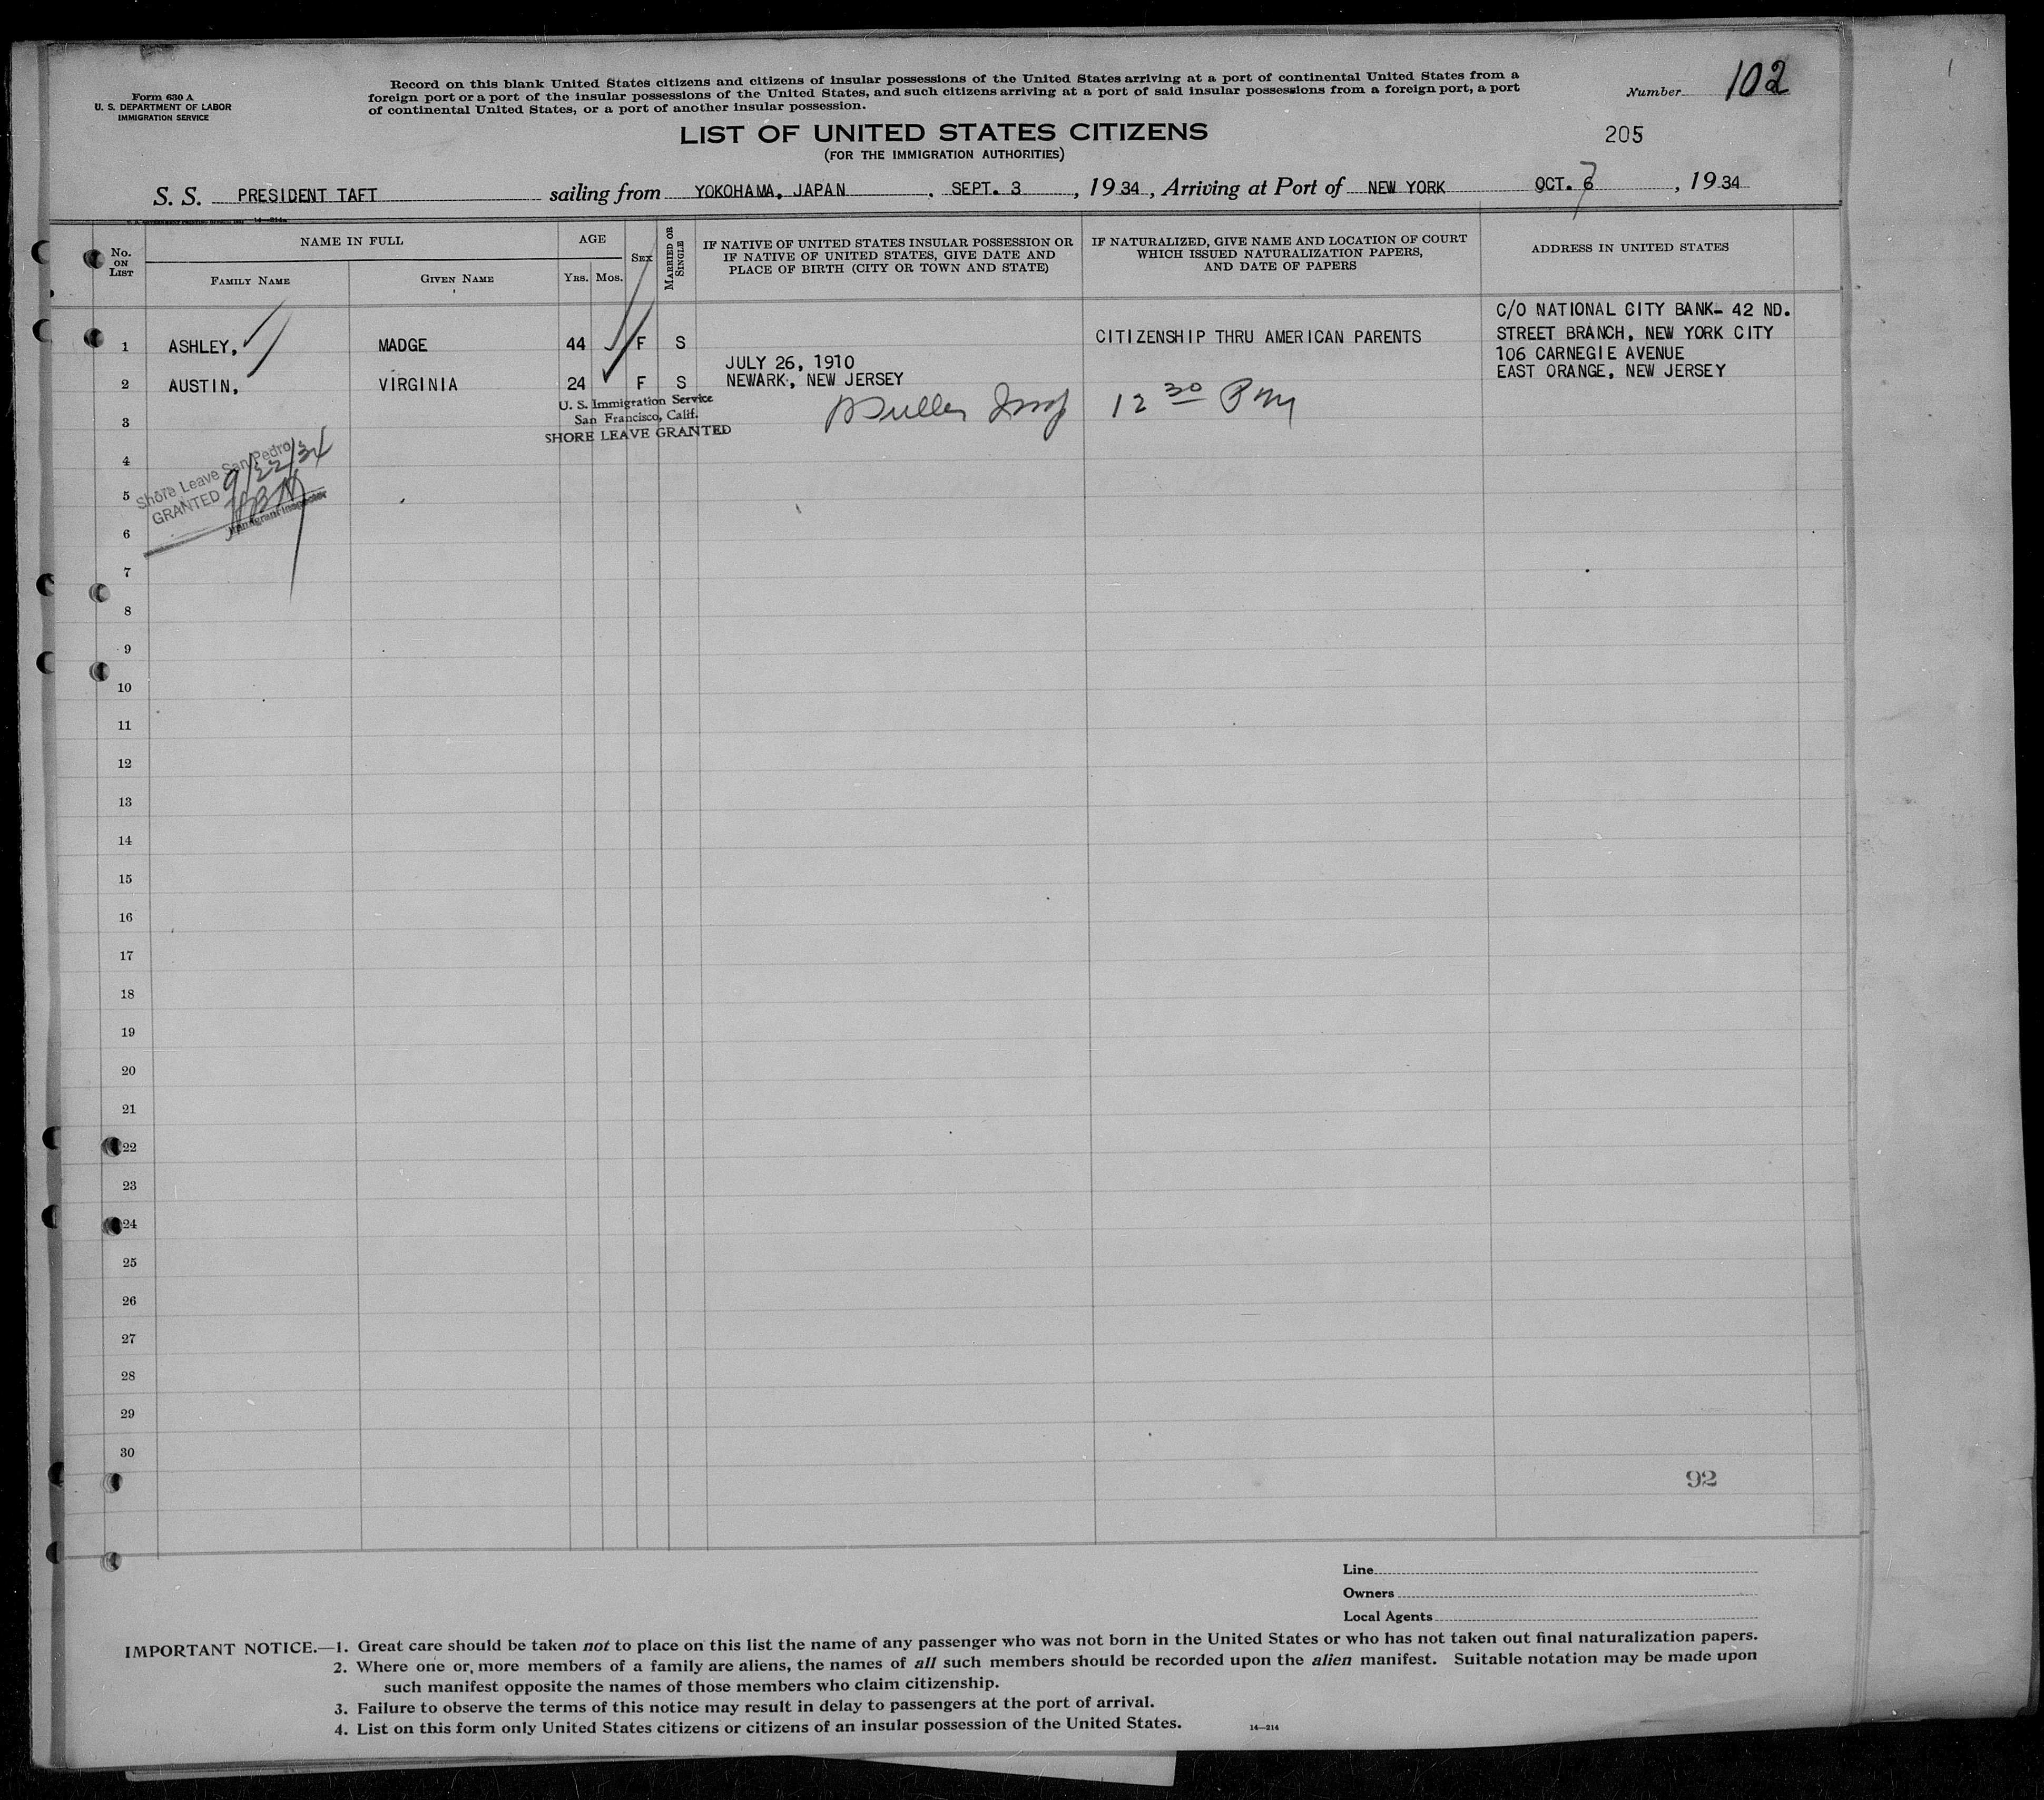 Form 630 A
U. S. DEPARTMENT OF LABOR
IMMIGRATION SERVICE
Record on this blank United States citizens and citizens of insular possessions of the United States arriving at a port of continental United States from a
foreign port or a port of the insular possessions of the United States, and such citizens arriving at a port of said insular possessions from a foreign port, a port
of continental United States, or a port of another insular possession.
Number 102
LIST OF UNITED STATES CITIZENS
205
(FOR THE IMMIGRATION AUTHORITIES)
S. S. PRESIDENT TAFT sailing from YOKOHAMA, JAPAN, SEPT. 3, 1934, Arriving at Port of NEW YORK OCT. 6 7, 1934
No. ON LIST
NAME IN FULL
FAMILY NAME
GIVEN NAME
AGE
YRS. MOS.
SEX
MARRIED OR SINGLE
IF NATIVE OF UNITED STATES INSULAR POSSESSION OR
IF NATIVE OF UNITED STATES, GIVE DATE AND
PLACE OF BIRTH (CITY OR TOWN AND STATE)
IF NATURALIZED, GIVE NAME AND LOCATION OF COURT
WHICH ISSUED NATURALIZATION PAPERS,
AND DATE OF PAPERS
ADDRESS IN UNITED STATES
C/O NATIONAL CITY BANK- 42 ND.
1 ASHLEY, MADGE 44 F S CITIZENSHIP THRU AMERICAN PARENTS STREET BRANCH, NEW YORK CITY
JULY 26, 1910 106 CARNEGIE AVENUE
2 AUSTIN, VIRGINIA 24 F S NEWARK, NEW JERSEY EAST ORANGE, NEW JERSEY
U. S. Immigration Service
San Francisco, Calif.
SHORE LEAVE GRANTED
12 30 PM
3
4
Shore Leave San Pedro
GRANTED 9/22/34
Immigrant Inspector
5
6
7
8
9
10
11
12
13
14
15
16
17
18
19
20
21
22
23
24
25
26
27
28
29
30
92
Line
Owners
Local Agents
IMPORTANT NOTICE.—1. Great care should be taken not to place on this list the name of any passenger who was not born in the United States or who has not taken out final naturalization papers.
2. Where one or more members of a family are aliens, the names of all such members should be recorded upon the alien manifest. Suitable notation may be made upon
such manifest opposite the names of those members who claim citizenship.
3. Failure to observe the terms of this notice may result in delay to passengers at the port of arrival.
4. List on this form only United States citizens or citizens of an insular possession of the United States.
14—214